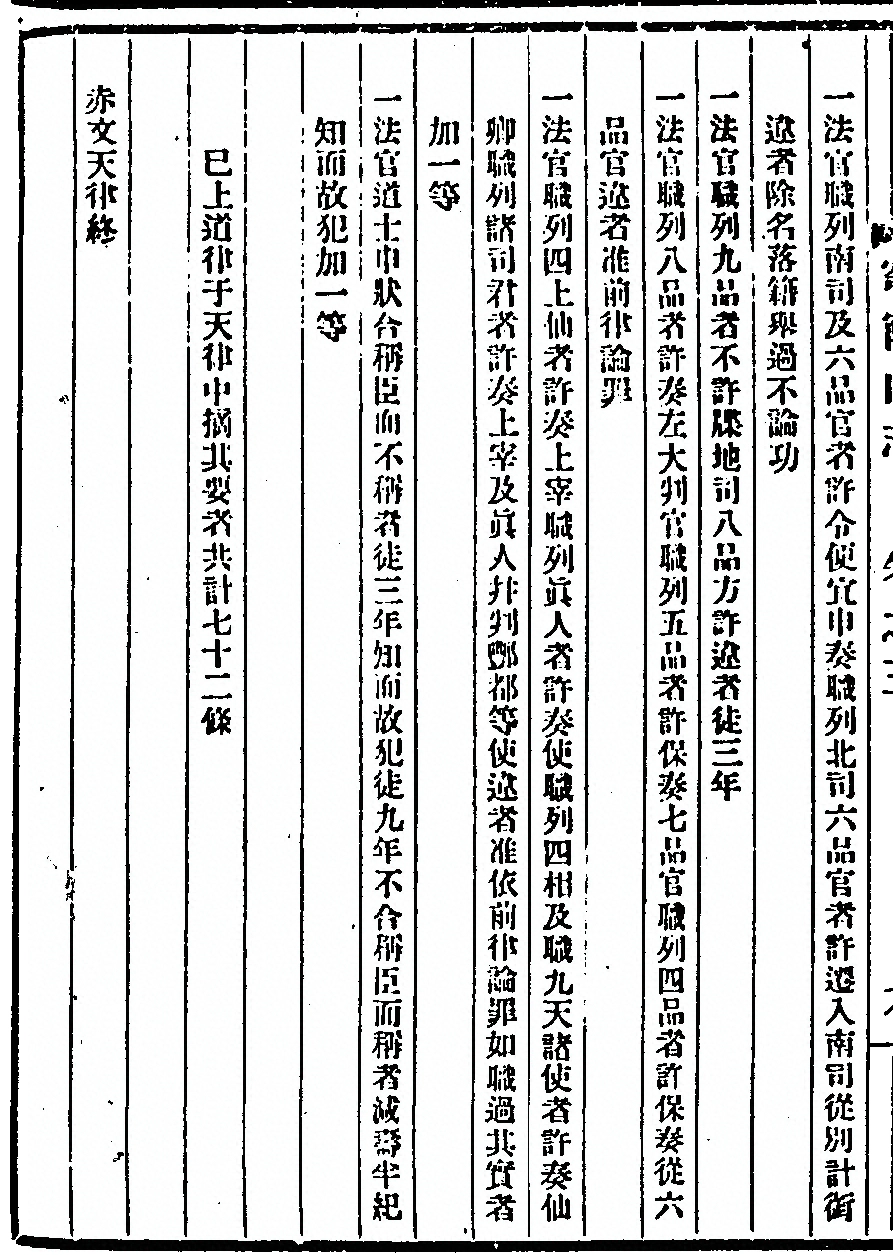 一法官職列南司及六品官者許令便宜申奏職列北司六品官者許遷入南司從別計銜
違者除名落籍舉過不論功
一法官職列九品者不許牒地司八品方許違者徒三年
一法官職列八品者許奏左大判官職列五品者許保奏七品官職列四品者許保奏從六
品官違者准前律論罪
一法官職列四上仙者許奏上宰職列眞人者許奏使職列四相及職九天諸使者許奏仙
卿職列諸司君者許奏上宰及眞人并判酆都等使違者准依前律論罪如職過其實者
加一等
一法官道士申狀合稱臣而不稱者徒三年知而故犯徒九年不合稱臣而稱者減爲半紀
知而故犯加一等
已上道律于天律中摘其要者共計七十二條
赤文天律終